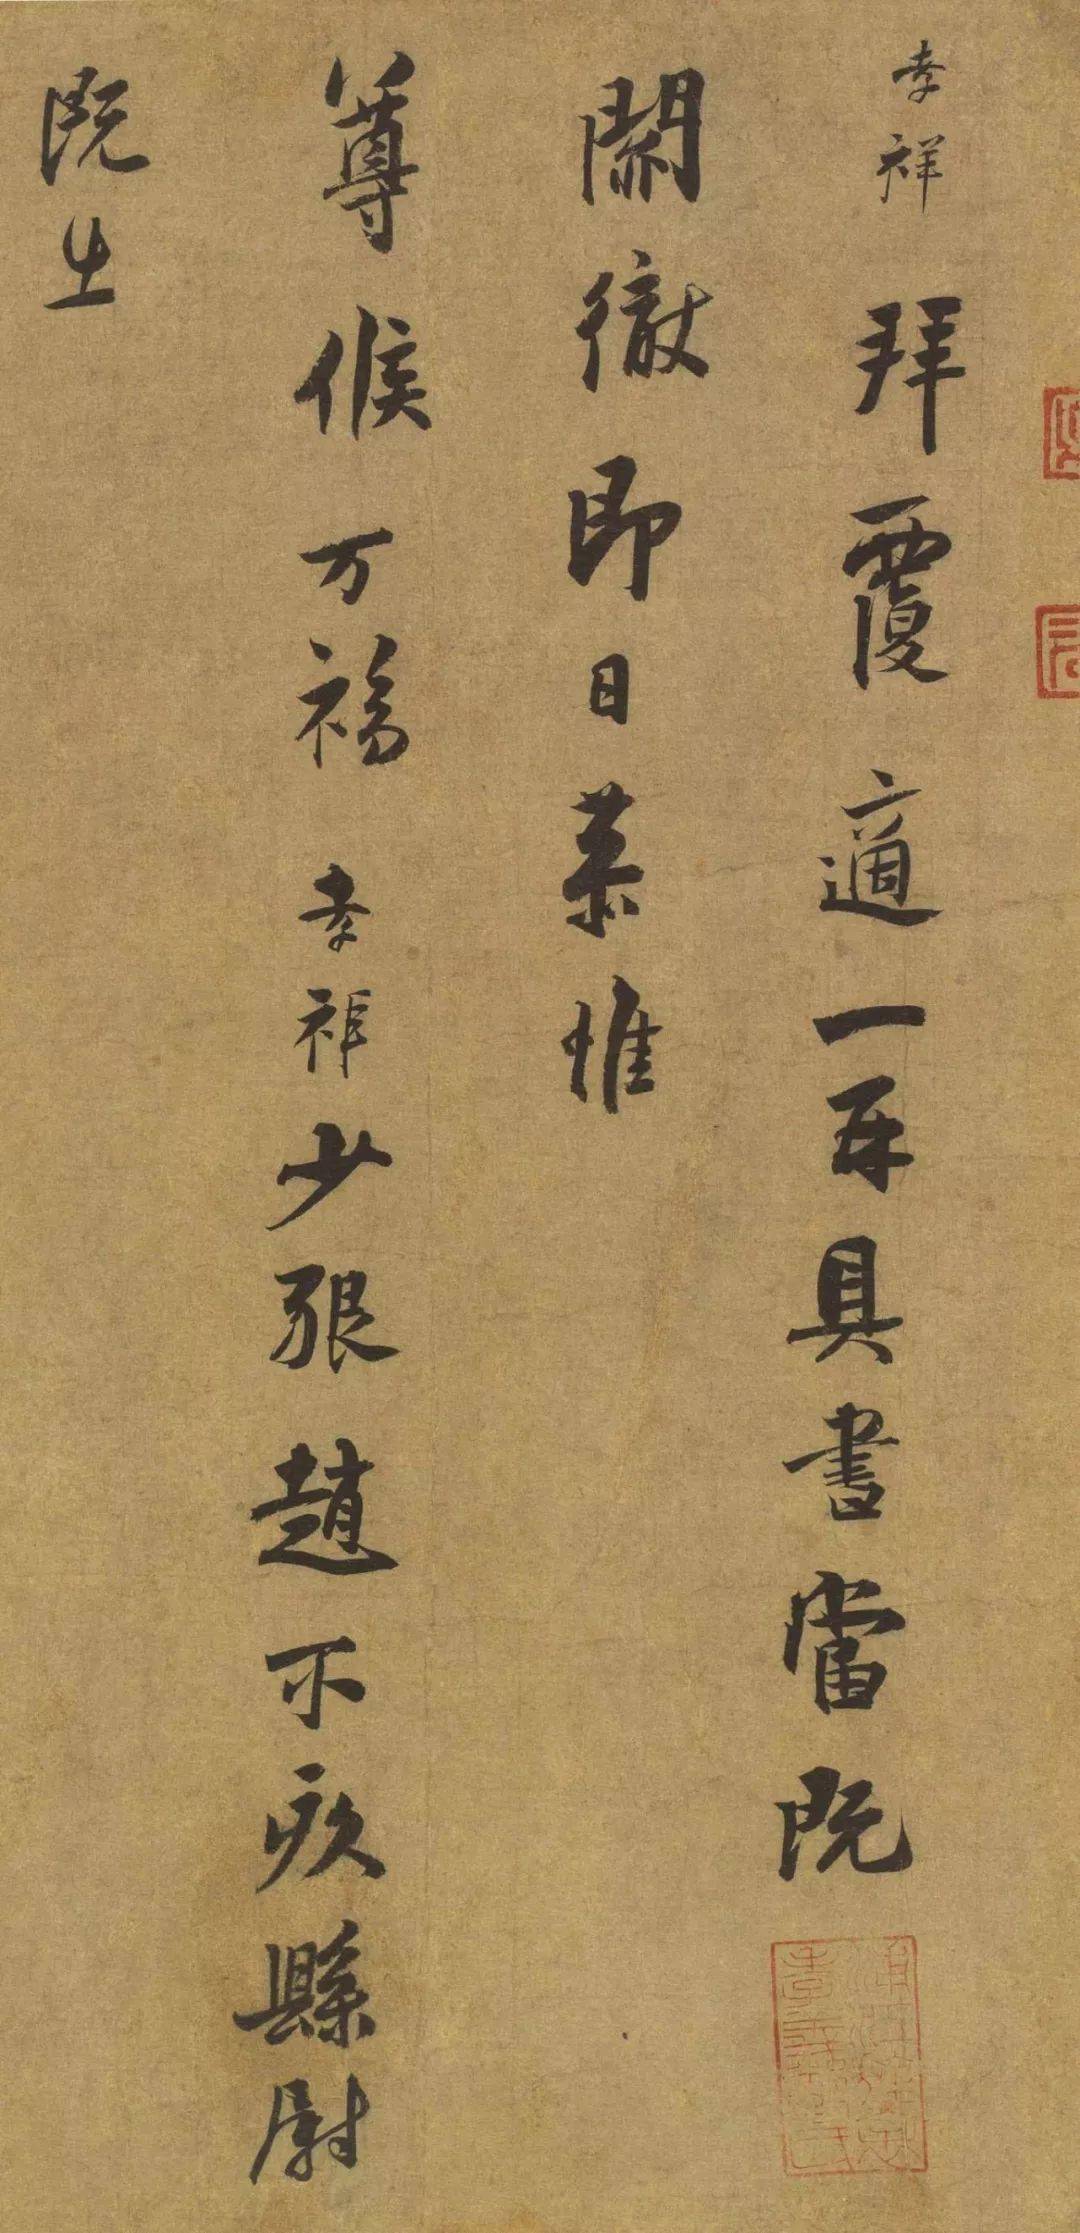 孝祥拜覆適一再具書當既
關徹即日恭惟
尊候万福孝祥少趙不疚縣尉
既